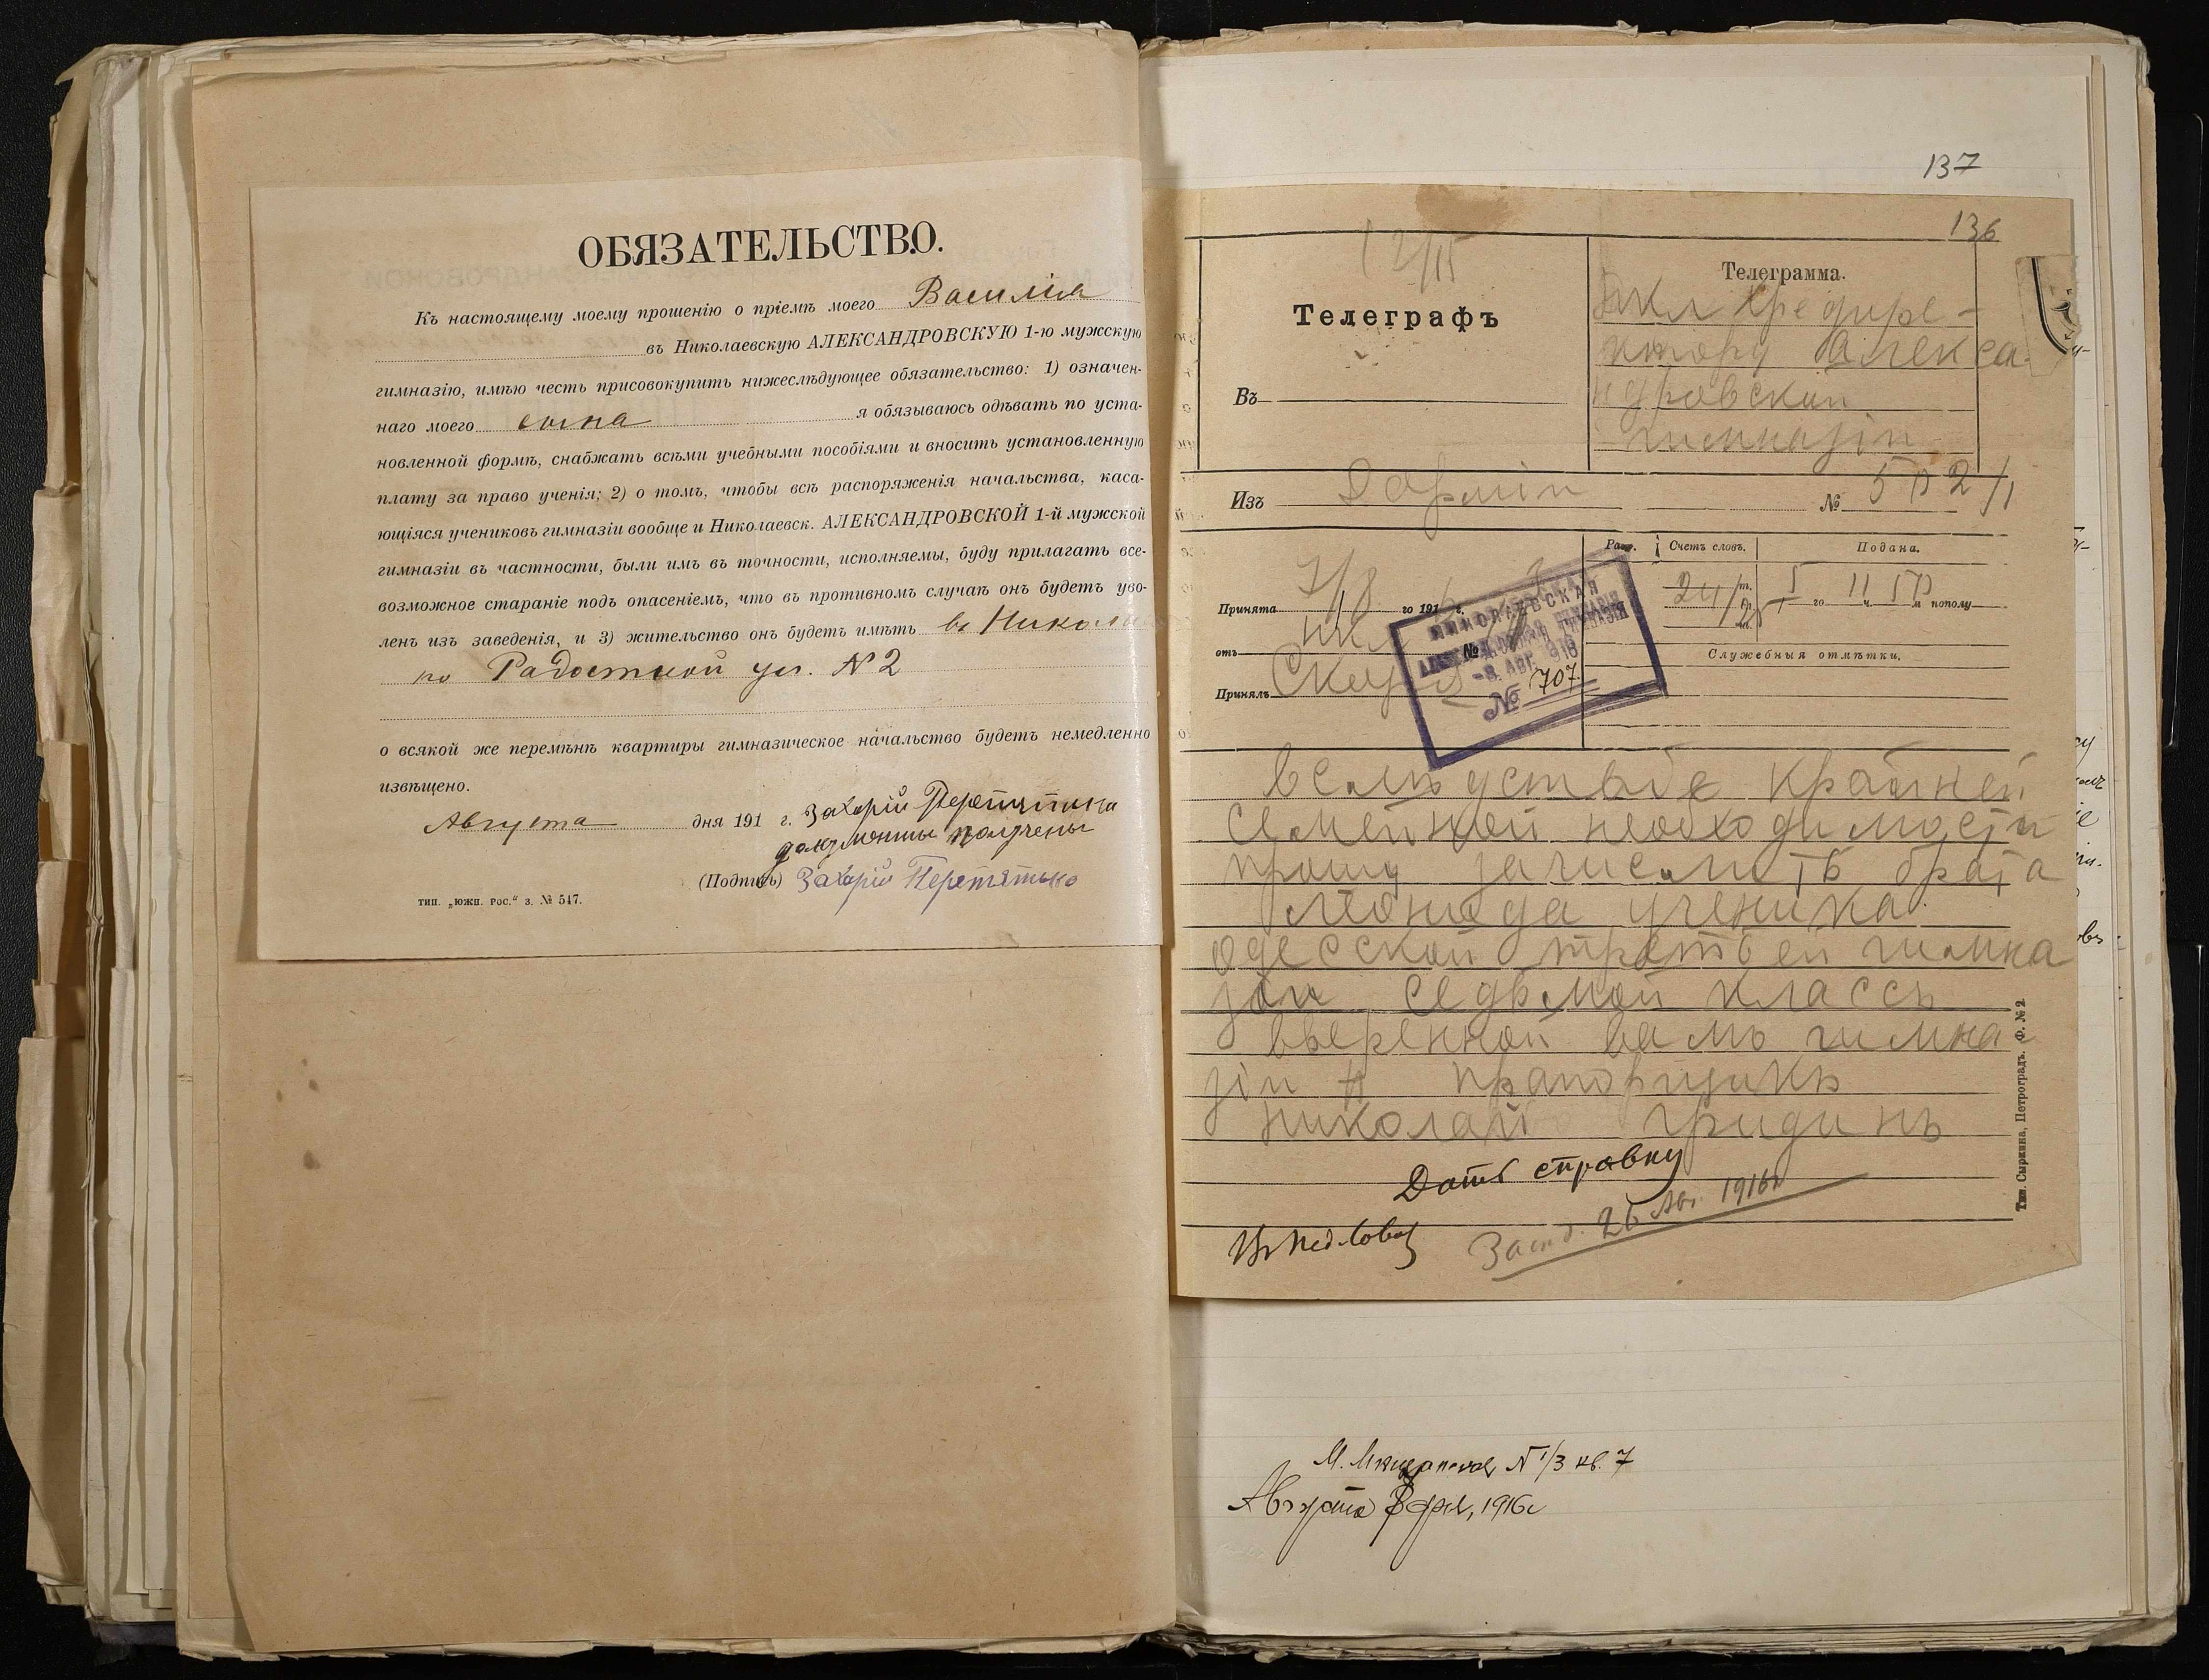 ОБЯЗАТЕЛЬСТВО.
Къ настоящему моему прошенію о пріемѣ моего Василія
въ Николаевскую АЛЕКСАНДРОВСКУЮ 1-ю мужскую
гимназію, имѣю честь присовокупить нижеслѣдующее обязательство: 1) означен-
наго моего сына я обязываюсь одѣвать по уста-
новленной формѣ, снабжать всѣми учебными пособіями и вносить установленную
плату за право ученія; 2) о томъ, чтобы всѣ распоряженія начальства, каса-
ющіяся учениковъ гимназіи вообще и Николаевск. АЛЕКСАНДРОВСКОЙ 1-й мужской
гимназіи въ частности, были имъ въ точности, исполняемы, буду прилагать все-
возможное стараніе подъ опасеніемъ, что въ противномъ случаѣ онъ будетъ уво-
ленъ изъ заведенія, и 3) жительство онъ будетъ имѣть въ Никола
по Радостной ул. № 2
о всякой же перемѣнѣ квартиры гимназическое начальство будетъ немедленно
извѣщено.
Августа дня 191 г. Захарій Перетятько
документы получены
(Подпись) Захарій Перетятько
тип. „южн. рос.“ з. № 547.
137
136
12/15
Телеграфъ
Въ
Телеграмма.
Нкл
директору Алекса
ндровской
гимназіи
Изъ № 5
Принята 7/8 го 191 г.
отъ нкл №
Принялъ
Разр. Счетъ словъ. Подана.
24 5 го 11 ч. 50 м. пополу
Служебныя отмѣтки.
НИКОЛАЕВСКАЯ
АЛЕКСАНДРОВСКАЯ ГИМНАЗІЯ
-8. АВГ. 1916
№ 707.
вслѣдствіе крайней
семейной необходимости
прошу зачислить брата
леонида ученика
одесской третьей гимна
зіи седьмой классъ
ввѣренной вамъ гимна
зіи прапорщикъ
николай гридинъ
Дать справку
26 Авг. 1916 г.
Тип. Сыркина, Петроградъ. Ф. № 2
№ 1/3 кв. 7
Августа 8 дня, 1916 г.